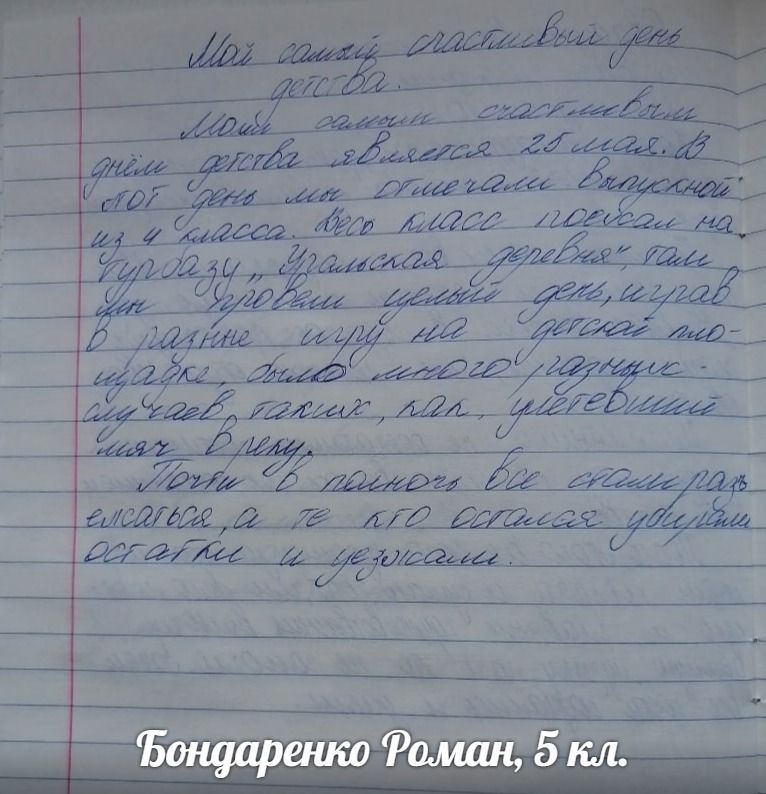 Мой самый счастливый день
детства.
Моим самым счастливым
днём детства является 25 мая. В
этот день мы отмечали выпускной
из 4 класса. Весь класс поехал на
турбазу „Уральская деревня", там
мы провели целый день, играв
в разные игру на детской пло-
щадке, было много разных
случаев, таких, как, улетевший
мяч в реку.
Почти в полночь все стали разъ
езжаться, а те кто остался убирали
остатки и уезжали.
Бондаренко Роман, 5 кл.